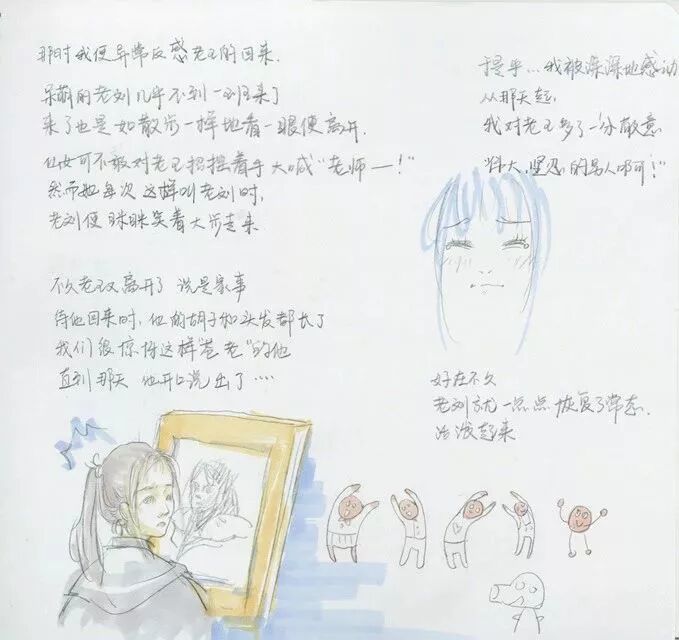 那时我便异常反感老王的回来.
呆萌的老刘几乎不到一班来了
来了也是如散步一样地看一眼便离开.
仙女可不敢对老王招摇着手大喊“老师—!”
然而她每次这样叫老刘时,
老刘便眯眯笑着大步走来
不久老王又离开了 说是家事
待他回来时,他的胡子和头发都长了
我们很惊讶这样“苍老”的他
直到那天 他开口说出了····
于是乎...我被深深地感动
从那天起,
我对老王多了一分敬意
坚忍的男人啊!”
好在不久
老刘就一点点恢复了常态.
活泼起来